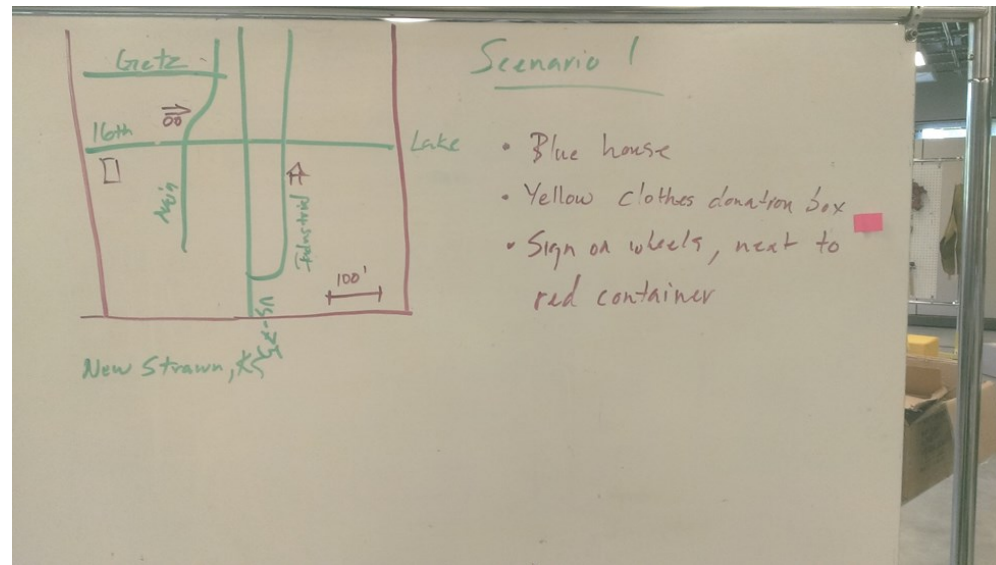 Getz
16th
Lake
Main
Industrial
100'
US-75
New Strawn, KS
Scenario 1
• Blue house
• Yellow clothes donation box
• Sign on wheels, next to
red container